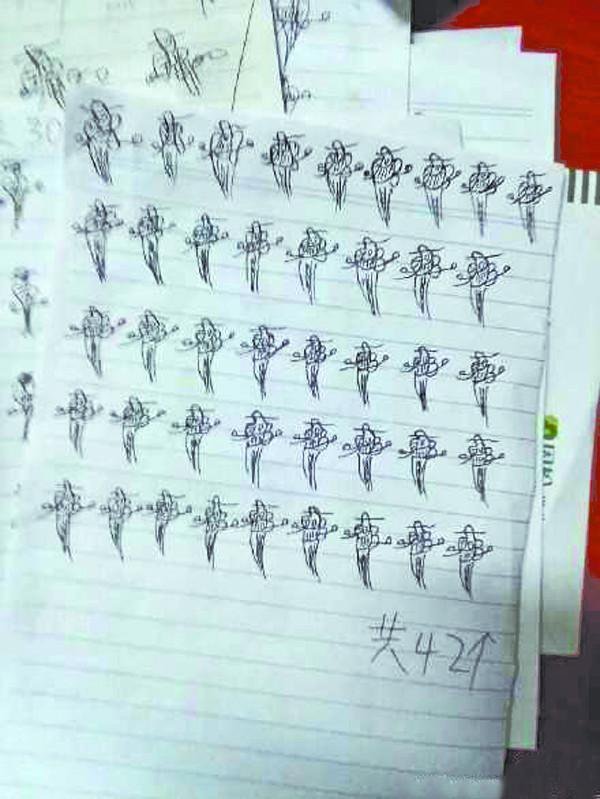 共42个
30